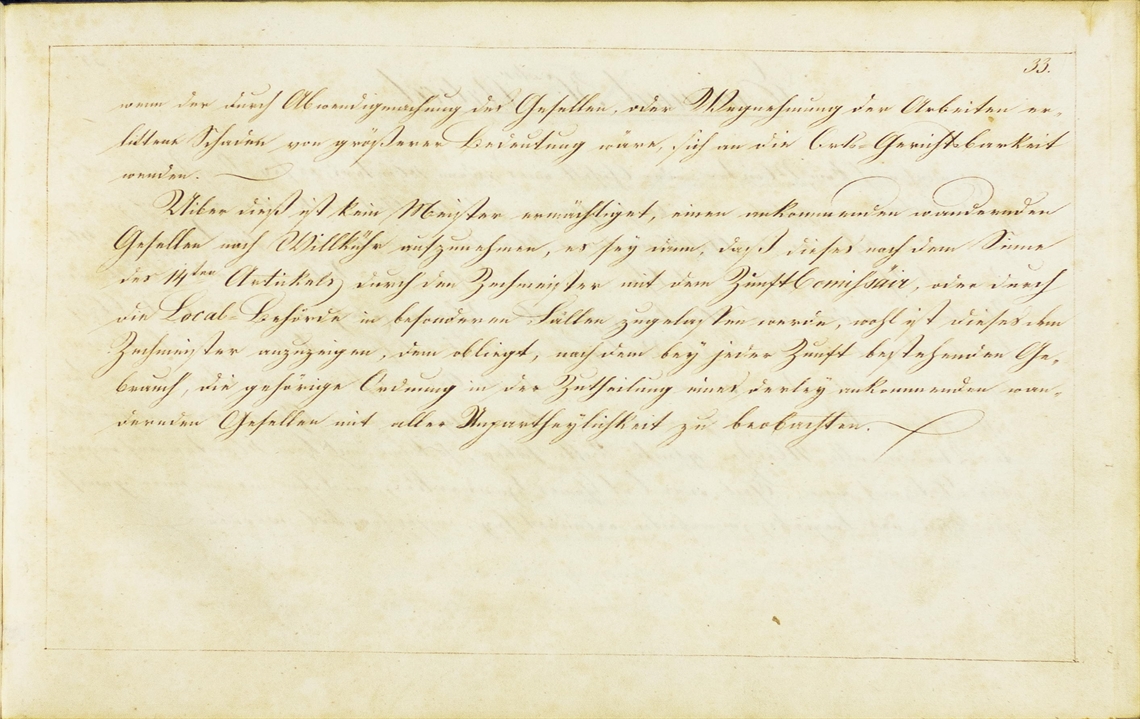 33.
wenn der durch Abwendigmachung des Gesellen, oder Wegnehmung der Arbeiten er-
littene Schaden von größerer Bedeutung wäre, sich an die Orts-Gerichtsbarkeit
wenden.
Uiber dieß ist kein Meister ermächtiget, einen ankommenden wandernden
Gesellen nach Willkühr aufzunehmen, es sey denn, daß dieses nach dem Sinne
des 14ten Artickels durch den Zechmeister mit dem Zunft Comißair, oder durch
die Local-Behörde in besonderen Fällen zugelassen werde, wohl ist dieses dem
Zechmeister anzuzeigen, dem obliegt, nach dem bey jeder Zunft bestehenden Ge-
brauch, die gehörige Ordnung in der Zutheilung eines derley ankommenden wan-
dernden Gesellen mit aller Unpartheylichkeit zu beobachten.